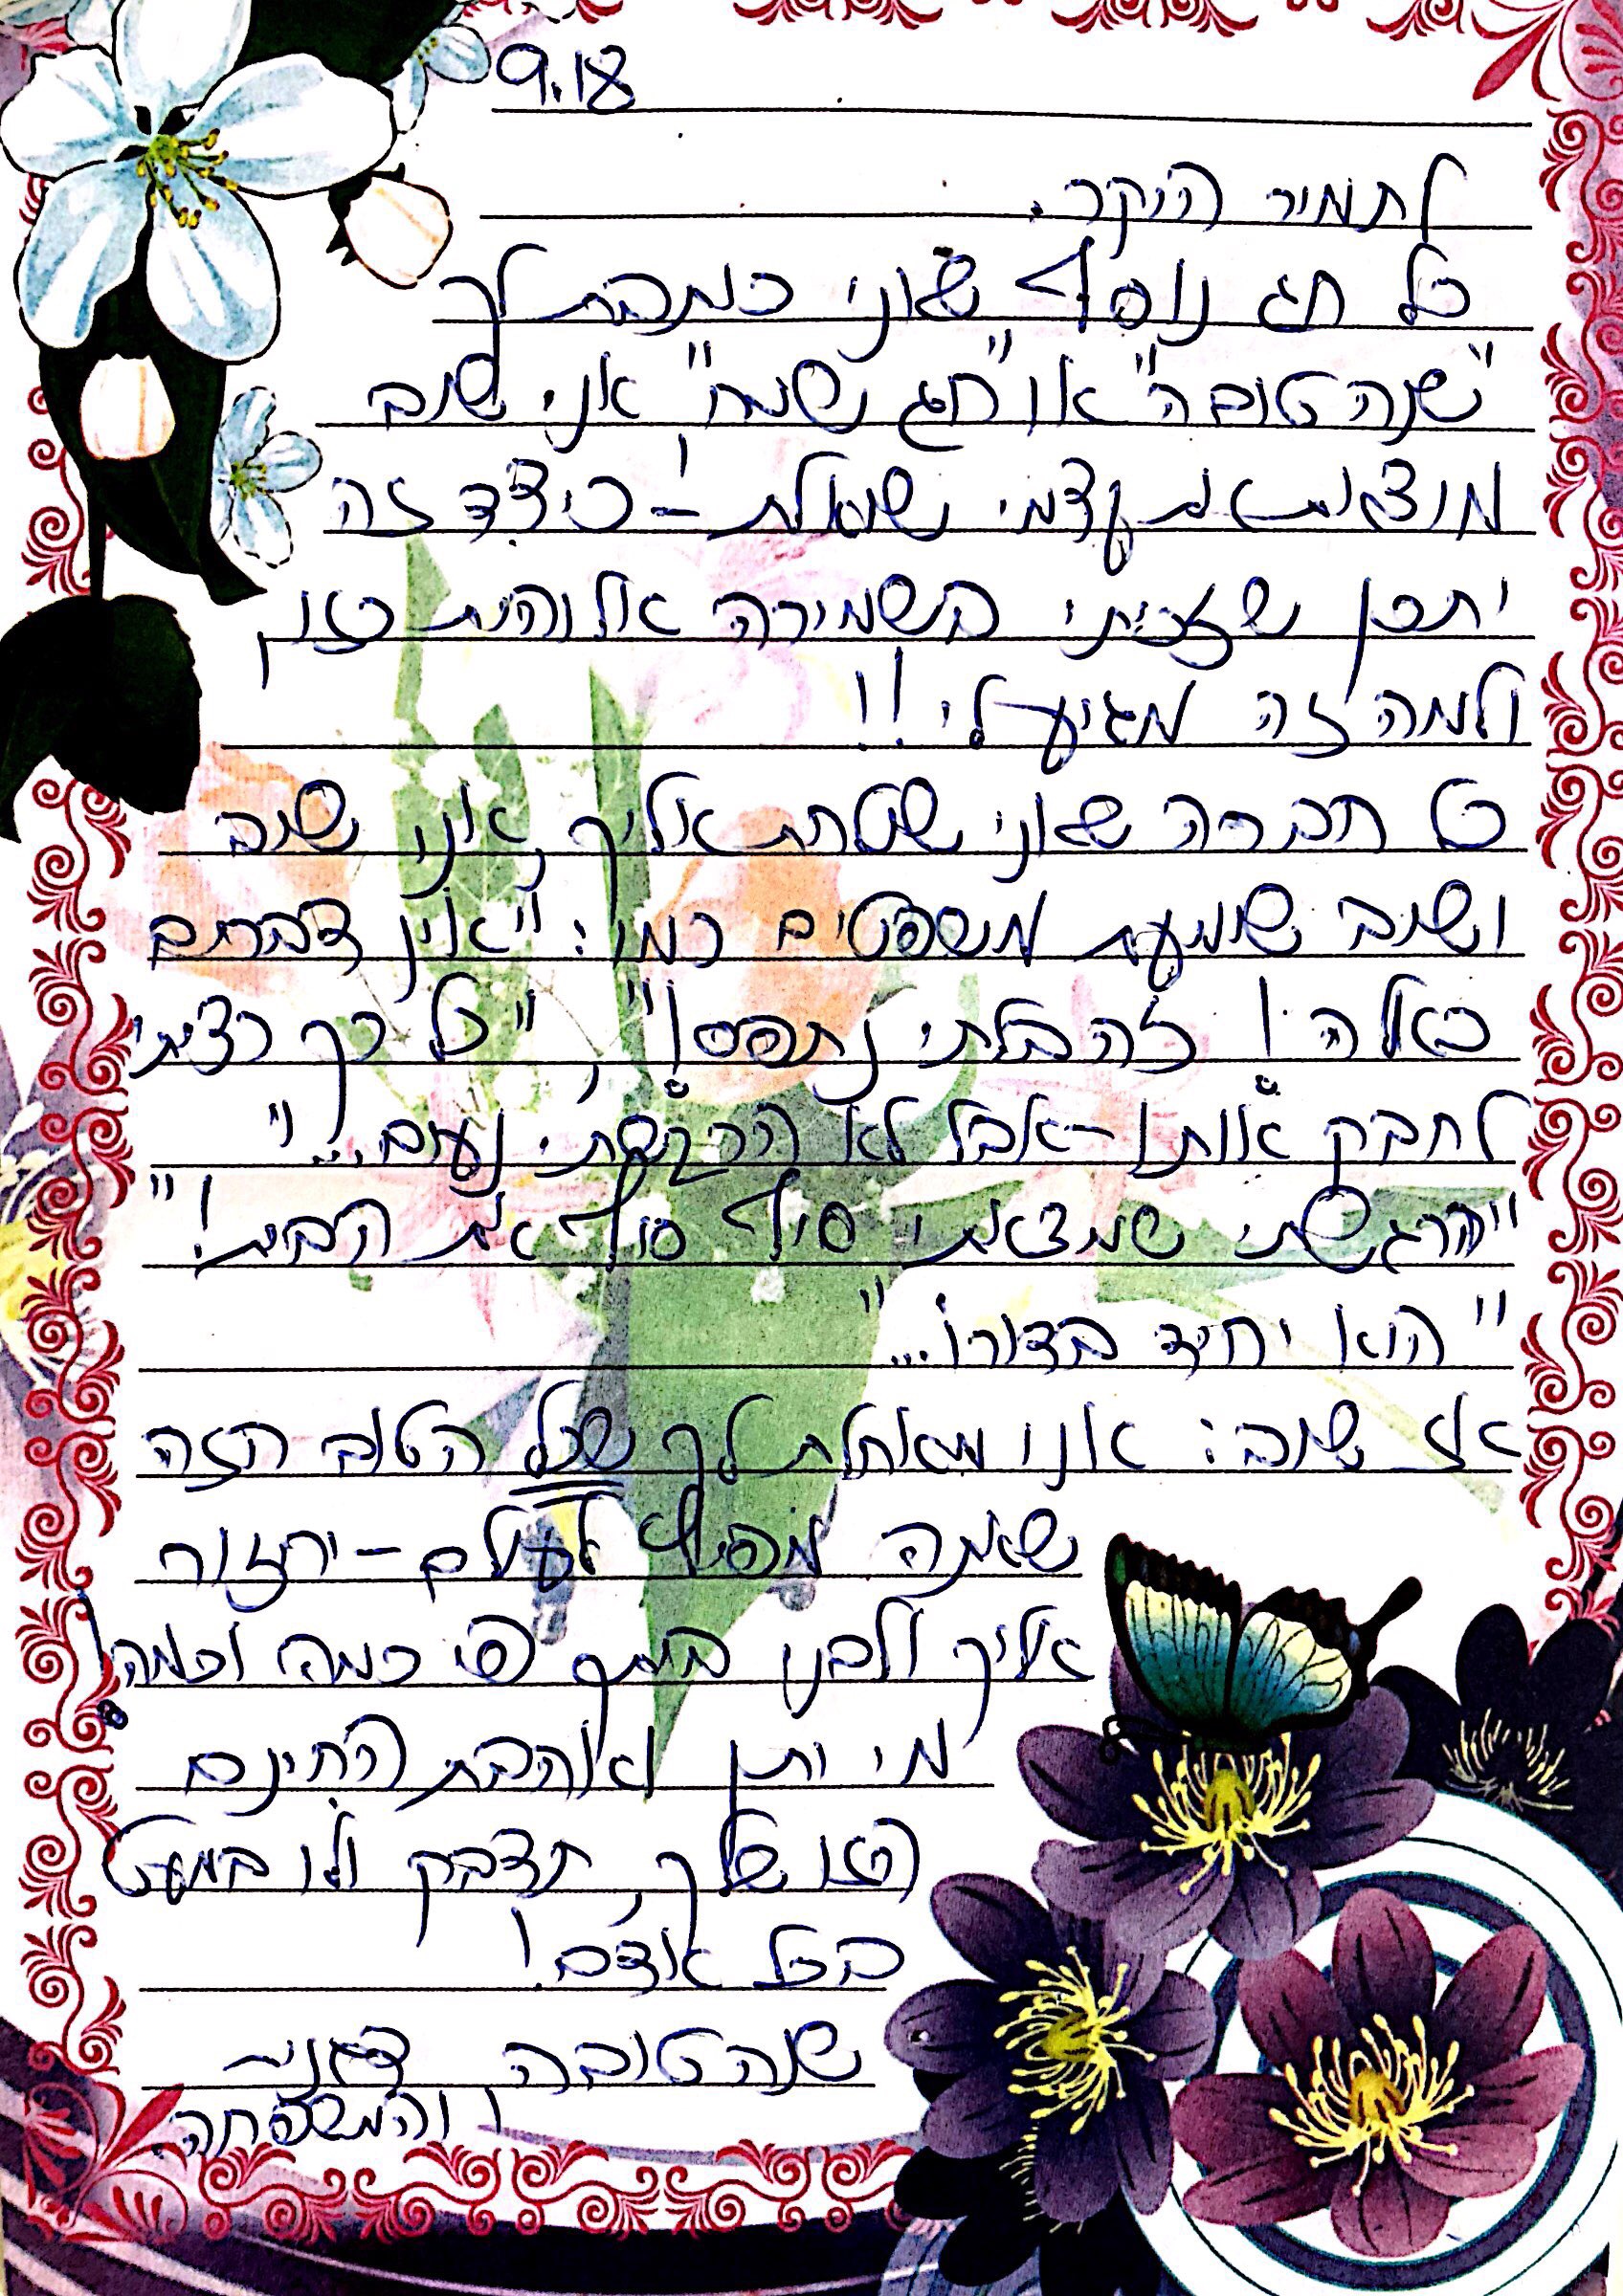 9.18
לתמיר היקר.
כל חג נוסף שאני כותבת לך
"שנה טובה" או "חג שמח" אני שוב
מוצאת את עצמי שואלת - כיצד זה
יתכן שזכיתי בשמירה אלוהית כזו,
ולמה זה מגיע לי!!
כל חברה שאני שולחת אליך, אני שוב
ושוב שומעת משפטים כמו: "אין דברים
כאלה! זה בלתי נתפס!", "כל כך רציתי
לחבק אותו - אבל לא הרגשתי נעים..."
"הרגשתי שמצאתי סוף סוף את הבית!"
"הוא יחיד בדורו..."
אז שוב: אני מאחלת לך שכל הטוב הזה
שאתה מפיץ לעולם - יחזור
אליך ולבני ביתך פי כמה וכמה!
מי יתן ואהבת החינם
הזו שלך, תדבק ולו במעט
בכל אדם!
שנה טובה
והמשפחה.